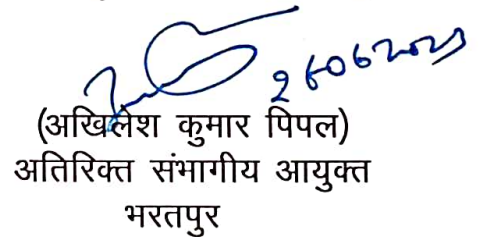 26062023
(अखिलेश कुमार पिपल)
अतिरिक्त संभागीय आयुक्त
भरतपुर